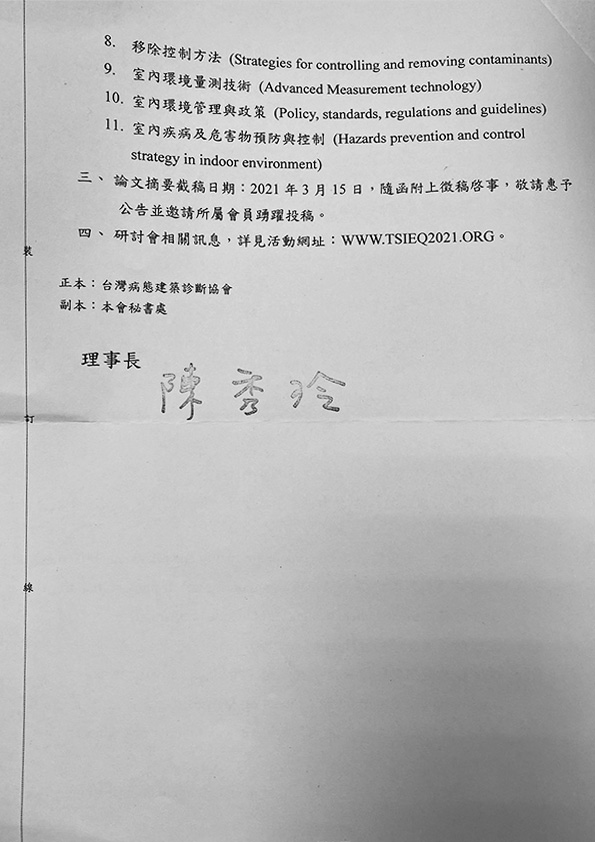 8. 移除控制方法 (Strategies for controlling and removing contaminants)
9. 室內環境量測技術 (Advanced Measurement technology)
10. 室內環境管理與政策 (Policy, standards, regulations and guidelines)
11. 室內疾病及危害物預防與控制 (Hazards prevention and control
strategy in indoor environment)
三、論文摘要截稿日期：2021 年 3 月 15 日，隨函附上徵稿啓事，敬請惠予
公告並邀請所屬會員踴躍投稿。
四、研討會相關訊息，詳見活動網址：WWW.TSIEQ2021.ORG。
裝
正本：台灣病態建築診斷協會
副本：本會秘書處
理事長 陳秀玲
訂
線